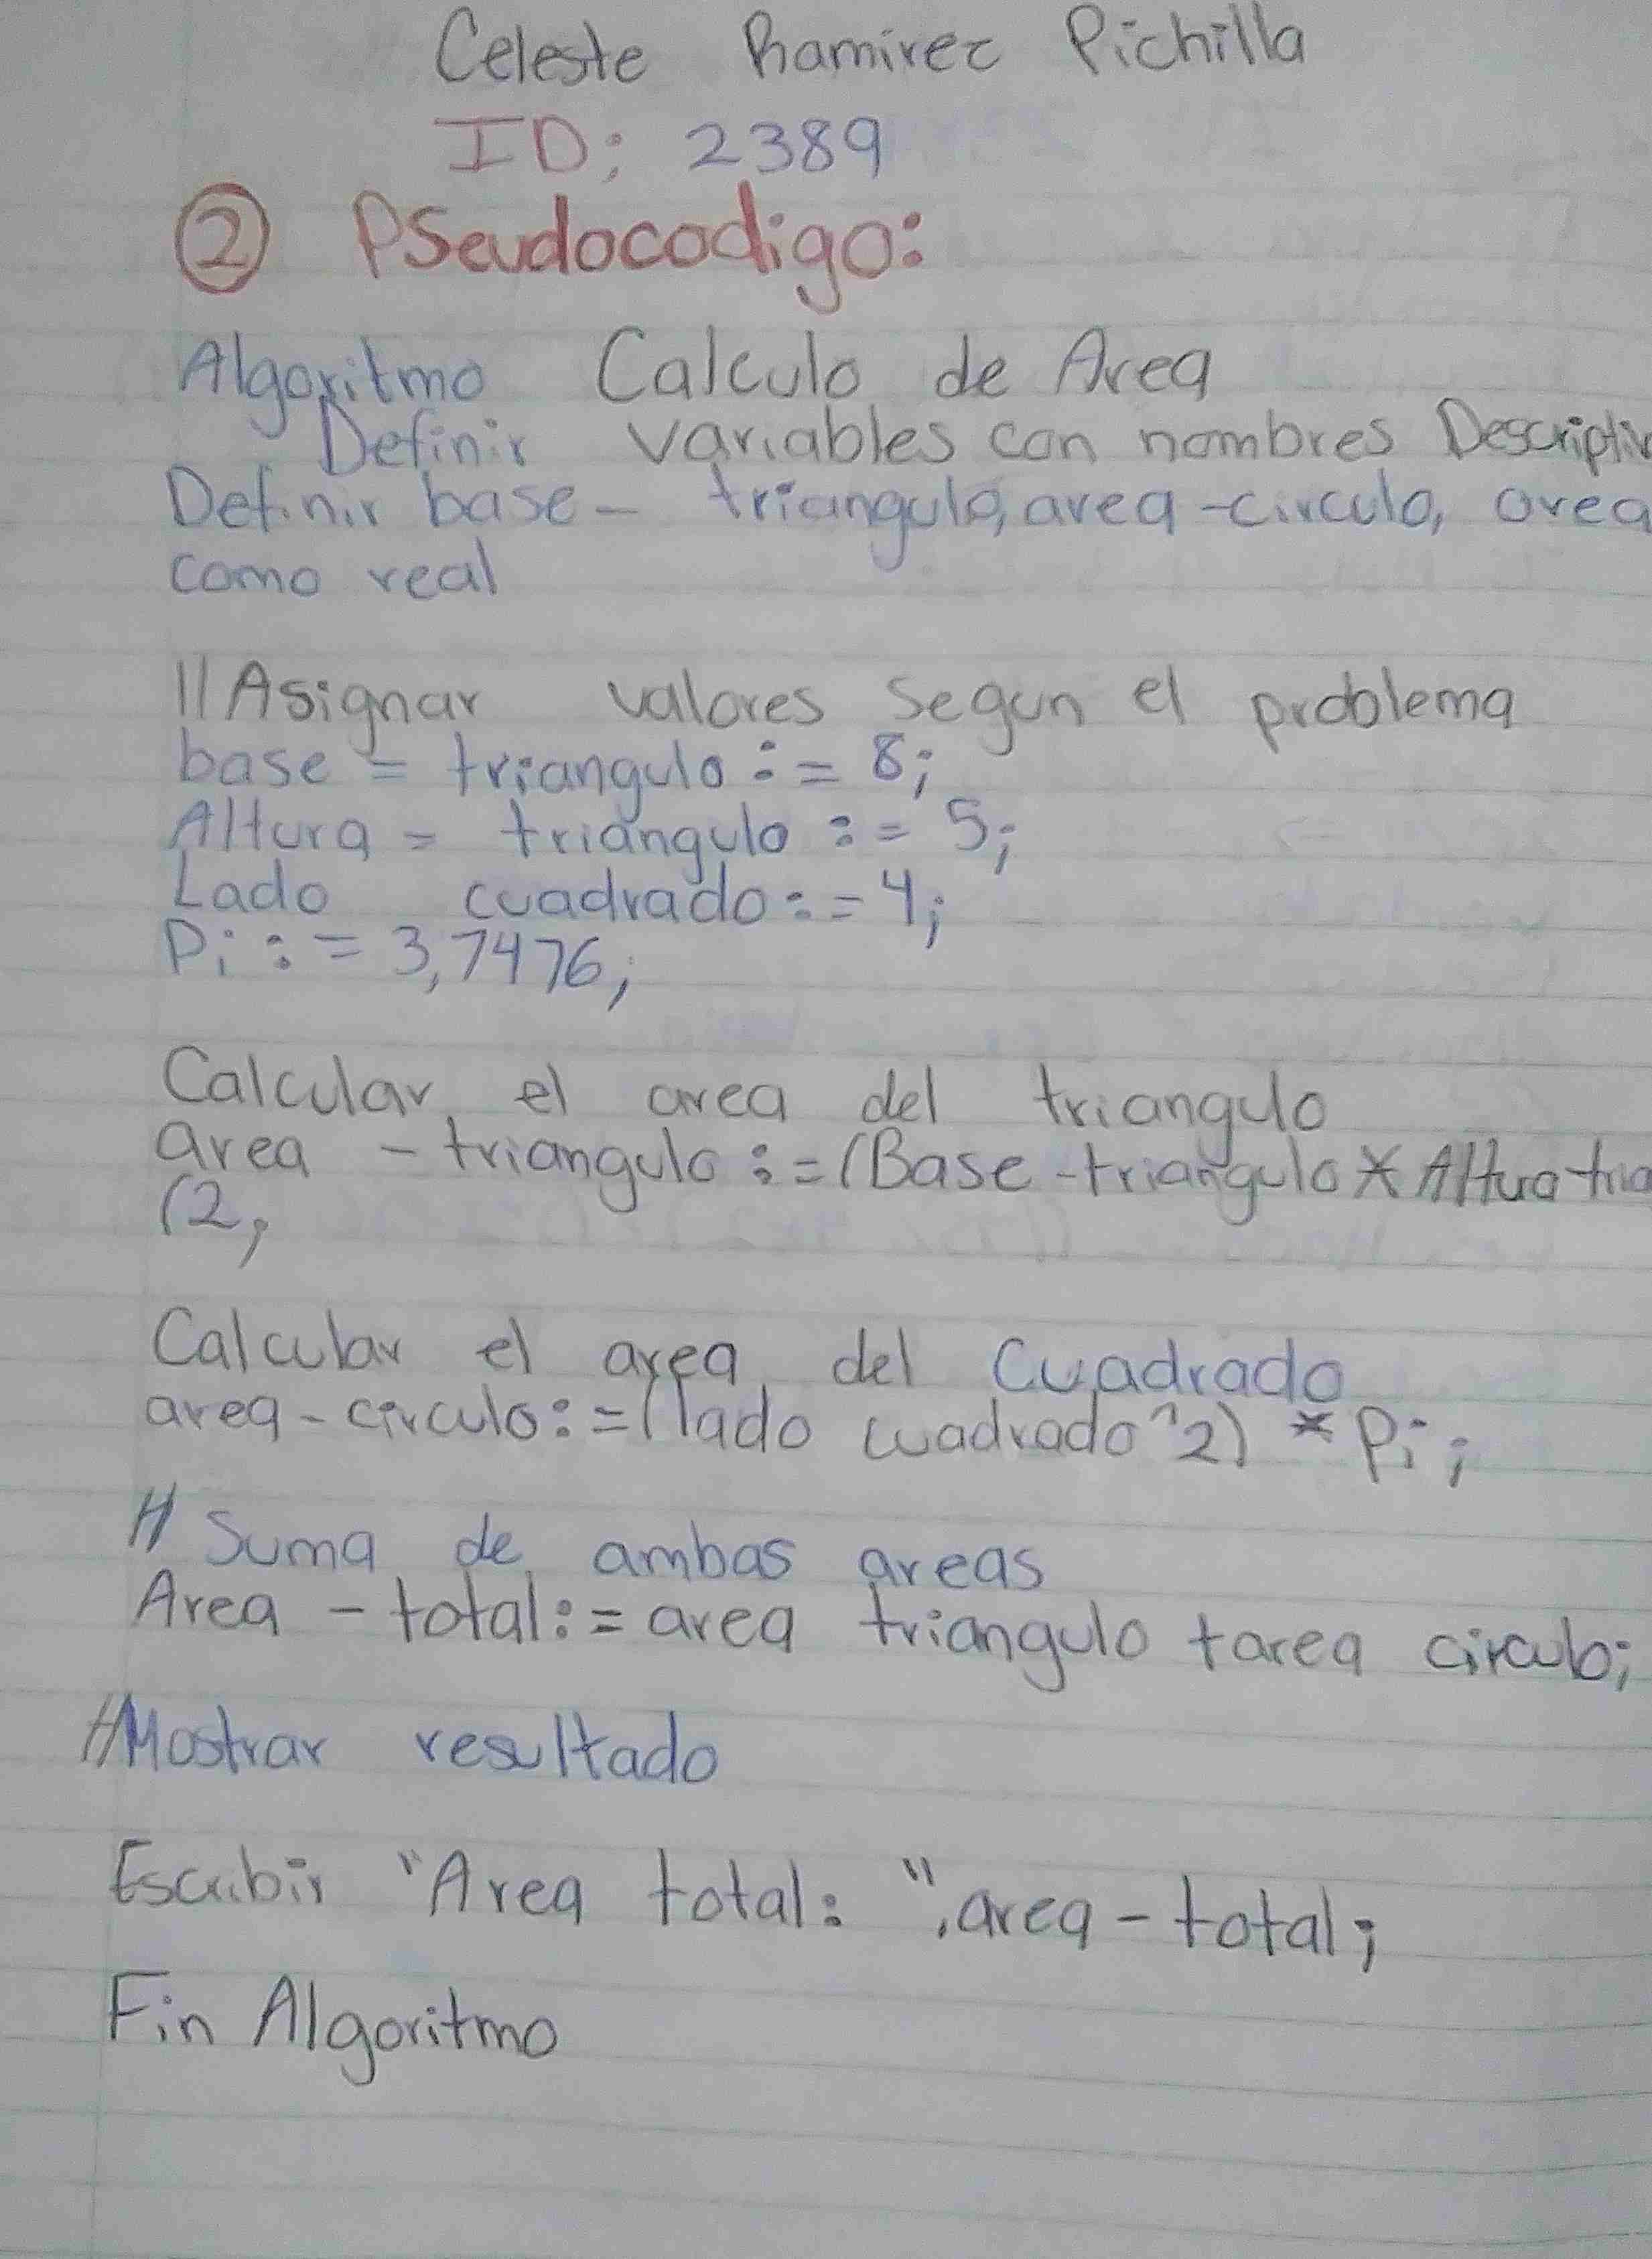 Celeste Ramirez Pichilla
ID: 2389
② PSeudocodigo:
Algoritmo Calculo de Area
Definir variables con nombres Descriptiv
Definir base - triangulo, area-circulo, area
como real
//Asignar valores Segun el problema
base = triangulo := 8;
Altura = triangulo := 5;
Lado cuadrado := 4;
Pi := 3,7476;
Calcular el area del triangulo
area - triangulo := (Base-triangulo * Altura tria
(2;
Calcular el area del Cuadrado
area-circulo := (lado cuadrado^2) * Pi;
// Suma de ambas areas
Area - total := area triangulo tarea circulo;
//Mostrar resultado
Escribir "Area total: ", area - total;
Fin Algoritmo